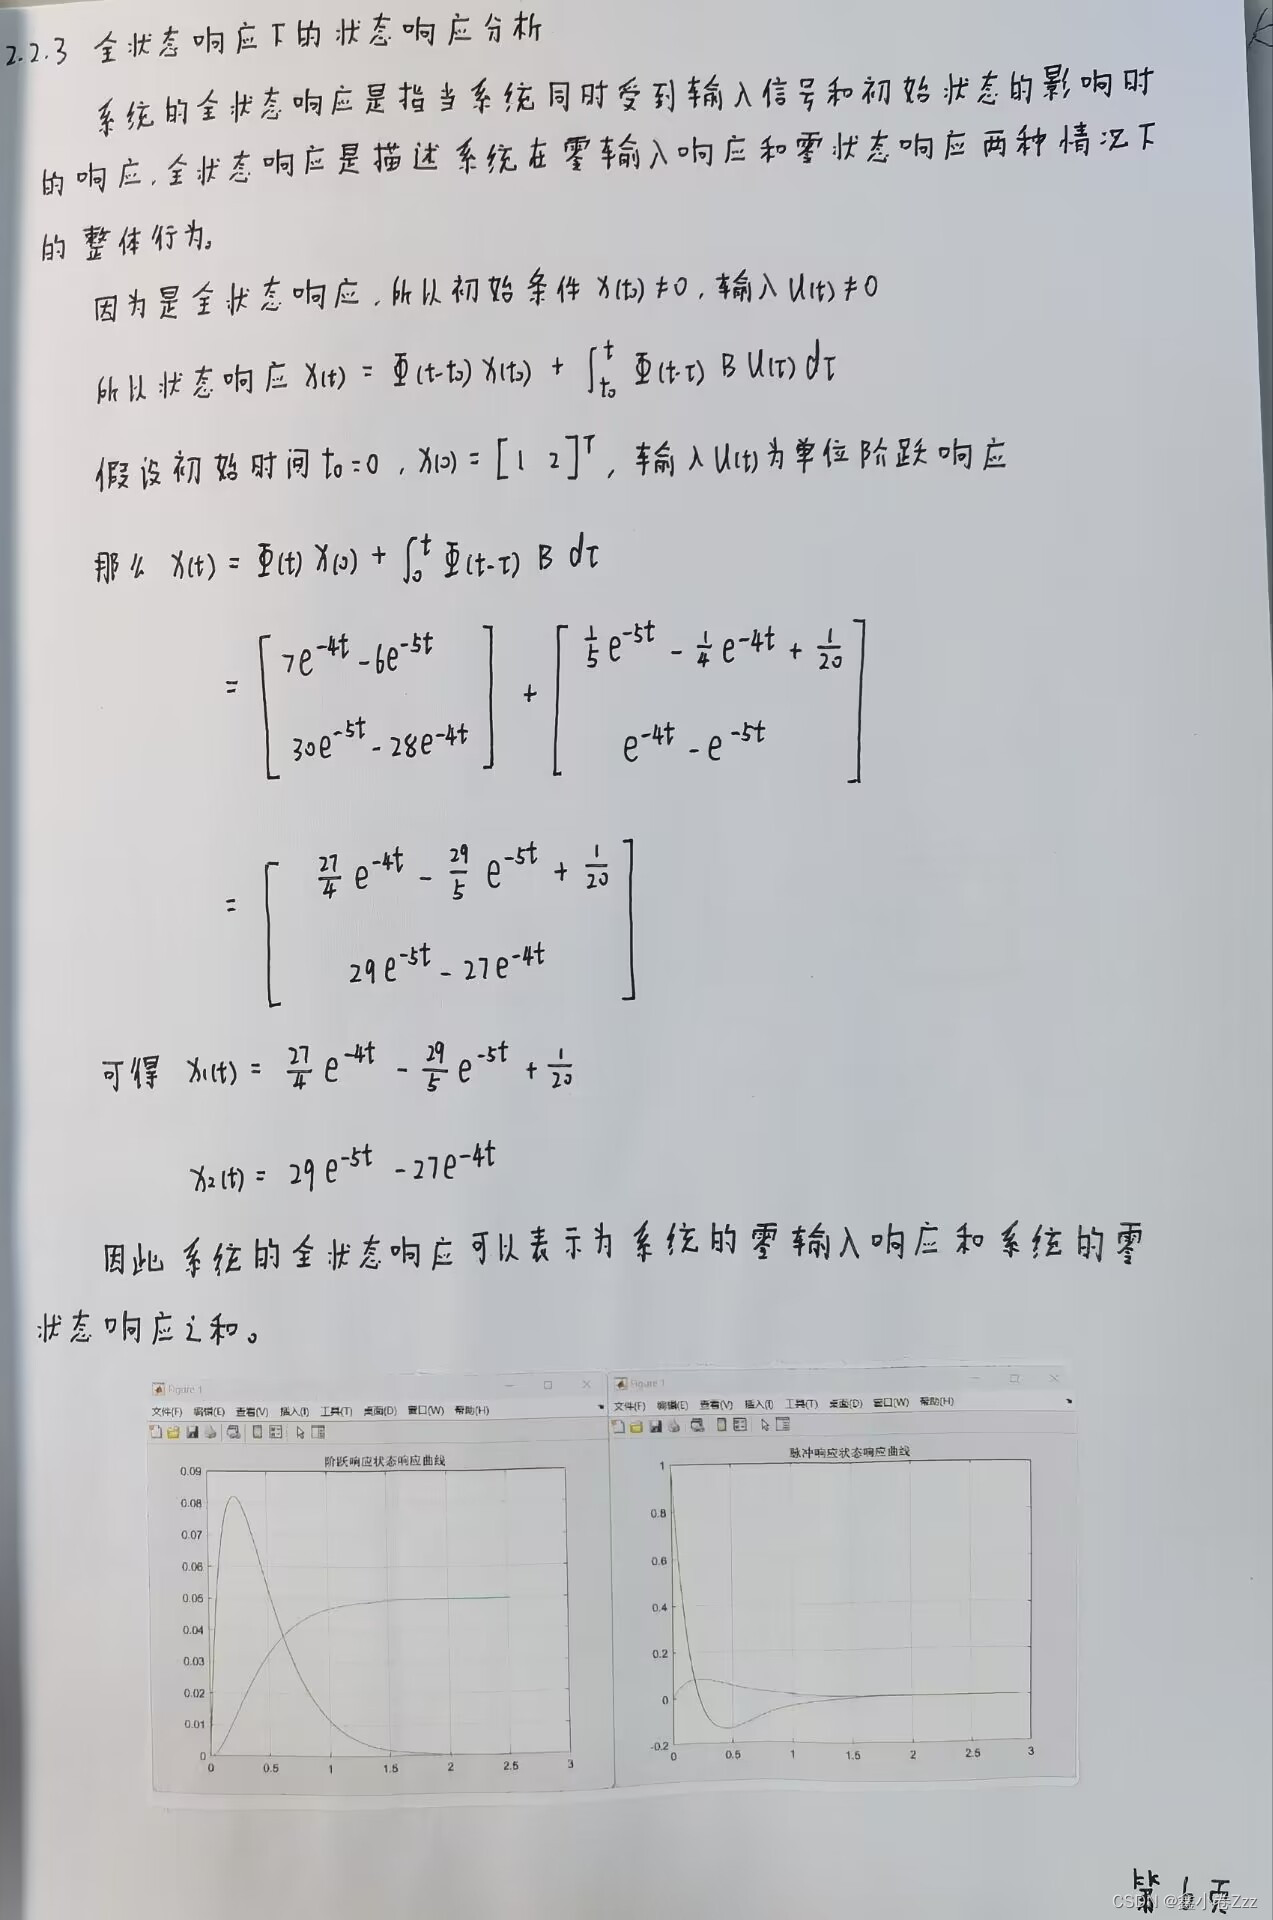 2.2.3 全状态响应下的状态响应分析
系统的全状态响应是指当系统同时受到输入信号和初始状态的影响时
的响应,全状态响应是描述系统在零输入响应和零状态响应两种情况下
的整体行为。
因为是全状态响应,所以初始条件 x(t₀)≠0,输入 U(t)≠0
所以状态响应 x(t) = Φ(t-t₀) x(t₀) + ∫_{t₀}^{t} Φ(t-τ) B U(τ) dτ
假设初始时间 t₀=0,x(0) = [1 2]ᵀ,输入 U(t)为单位阶跃响应
那么 x(t) = Φ(t) x(0) + ∫_{0}^{t} Φ(t-τ) B dτ
= [7e^{-4t} - 6e^{-5t}; 30e^{-5t} - 28e^{-4t}] + [1/5 e^{-5t} - 1/4 e^{-4t} + 1/20; e^{-4t} - e^{-5t}]
= [27/4 e^{-4t} - 29/5 e^{-5t} + 1/20; 29e^{-5t} - 27e^{-4t}]
可得 x₁(t) = 27/4 e^{-4t} - 29/5 e^{-5t} + 1/20
x₂(t) = 29e^{-5t} - 27e^{-4t}
因此系统的全状态响应可以表示为系统的零输入响应和系统的零
状态响应之和。
Figure 1
文件(F) 编辑(E) 查看(V) 插入(I) 工具(T) 桌面(D) 窗口(W) 帮助(H)
阶跃响应状态响应曲线
0.09
0.08
0.07
0.06
0.05
0.04
0.03
0.02
0.01
0
0 0.5 1 1.5 2 2.5 3
Figure 1
文件(F) 编辑(E) 查看(V) 插入(I) 工具(T) 桌面(D) 窗口(W) 帮助(H)
脉冲响应状态响应曲线
1
0.8
0.6
0.4
0.2
0
-0.2
0 0.5 1 1.5 2 2.5 3
第6页
CSDN @鑫小卷Zzz